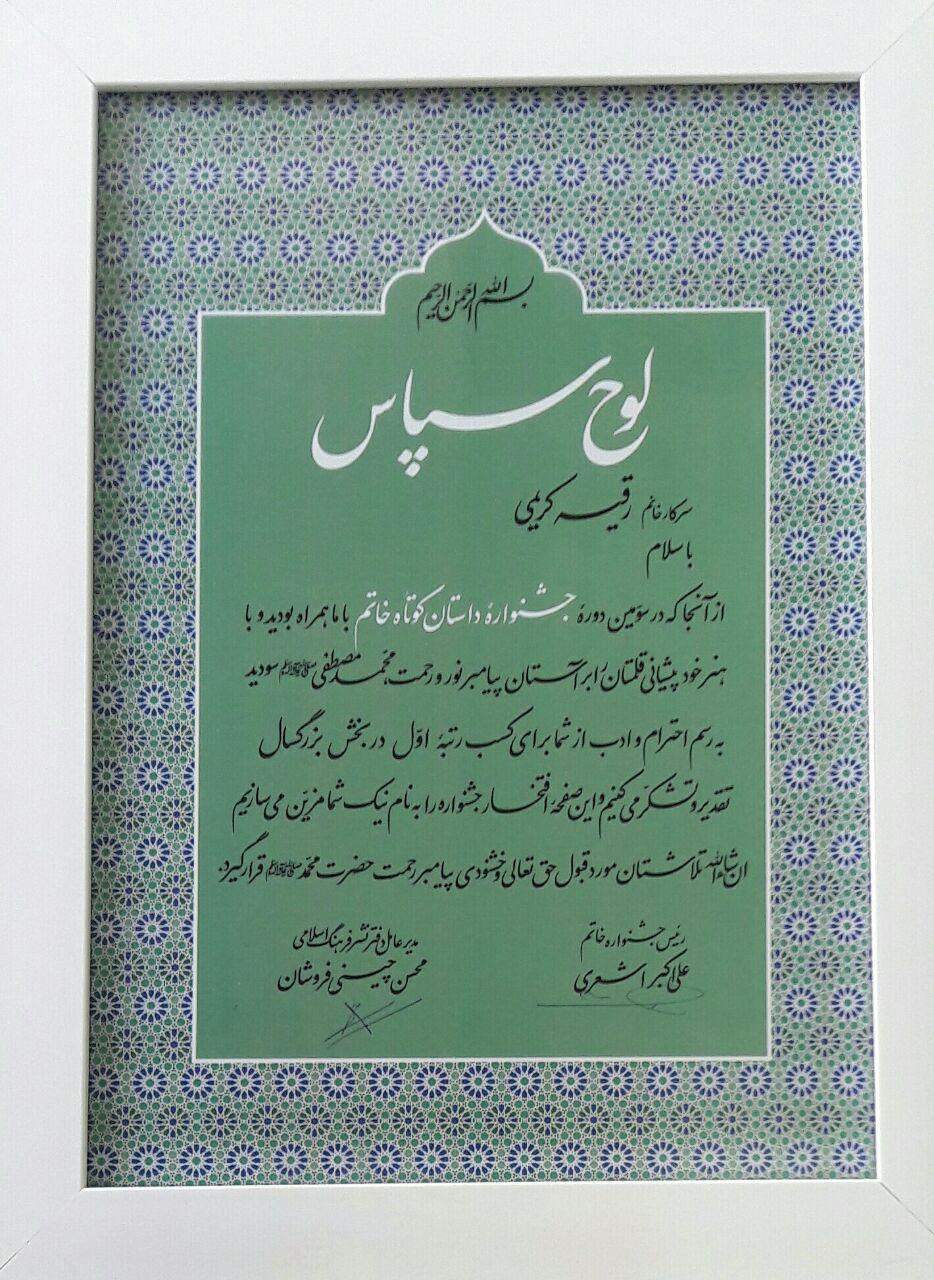 بسم الله الرحمن الرحیم
لوح سپاس
سرکار خانم رقیه کریمی
با سلام
از آنجا که در سوّمین دورۀ جشنوارۀ داستان کوتاه خاتم با ما همراه بودید و با
هنر خود پیشانی قلمتان را بر آستان پیامبر نور و رحمت محمّد مصطفی ﷺ سودید
به رسم احترام و ادب از شما برای کسب رتبۀ اوّل در بخش بزرگسال
تقدیر و تشکّر می کنیم و این صفحۀ افتخار جشنواره را به نام نیک شما مزیّن می سازیم
ان شاءالله تلاشتان مورد قبول حق تعالی و خشنودی پیامبر رحمت حضرت محمّد ﷺ قرار گیرد.
رئیس جشنواره خاتم
علی اکبر اشعری
مدیر عامل دفتر نشر فرهنگ اسلامی
محسن چینی فروشان